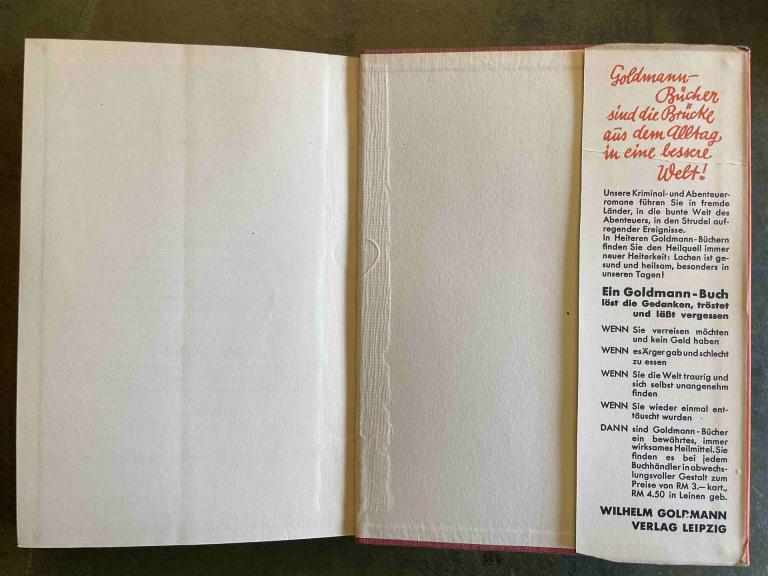 Goldmann-
Bücher
sind die Brücke
aus dem Alltag
in eine bessere
Welt!
Unsere Kriminal- und Abenteuer-
romane führen Sie in fremde
Länder, in die bunte Welt des
Abenteuers, in den Strudel auf-
regender Ereignisse.
In Heiteren Goldmann-Büchern
finden Sie den Heilquell immer
neuer Heiterkeit: Lachen ist ge-
sund und heilsam, besonders in
unseren Tagen!
Ein Goldmann-Buch
löst die Gedanken, tröstet
und läßt vergessen
WENN Sie verreisen möchten
und kein Geld haben
WENN es Ärger gab und schlecht
zu essen
WENN Sie die Welt traurig und
sich selbst unangenehm
finden
WENN Sie wieder einmal ent-
täuscht wurden
DANN sind Goldmann-Bücher
ein bewährtes, immer
wirksames Heilmittel. Sie
finden es bei jedem
Buchhändler in abwechs-
lungsvoller Gestalt zum
Preise von RM 3.— kart.,
RM 4.50 in Leinen geb.
WILHELM GOLDMANN
VERLAG LEIPZIG